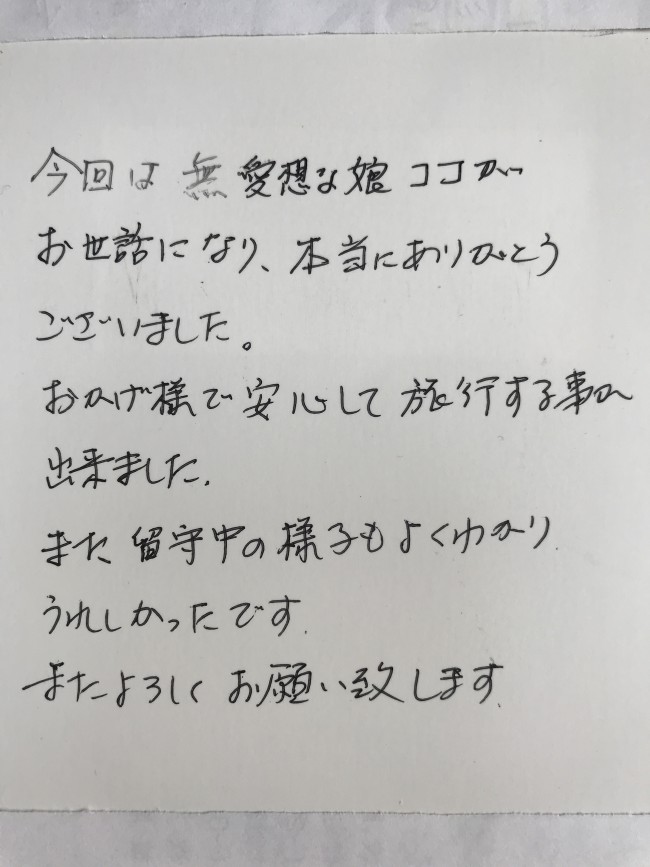 今回は無愛想な娘ココが
お世話になり、本当にありがとう
ございました。
おかげ様で安心して旅行する事が
出来ました.
また留守中の様子もよくわかり
うれしかったです.
またよろしくお願い致します.